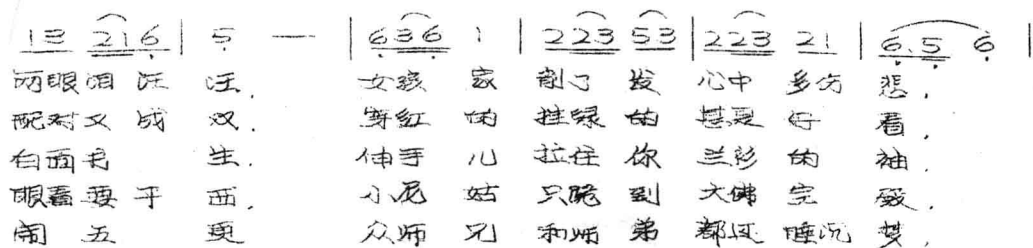 13 216 | 5 — | 636 1 | 223 53 | 223 21 | 6.5 6 |
两眼泪汪汪，女孩家削了发心中多伤悲，
配对又成双，穿红的挂绿的甚是好看，
白面书生，伸手儿拉住你兰衫的袖，
眼看要平西，小尼姑只跪到大佛宝殿，
闹五更众师兄和师弟都还睡沉梦，